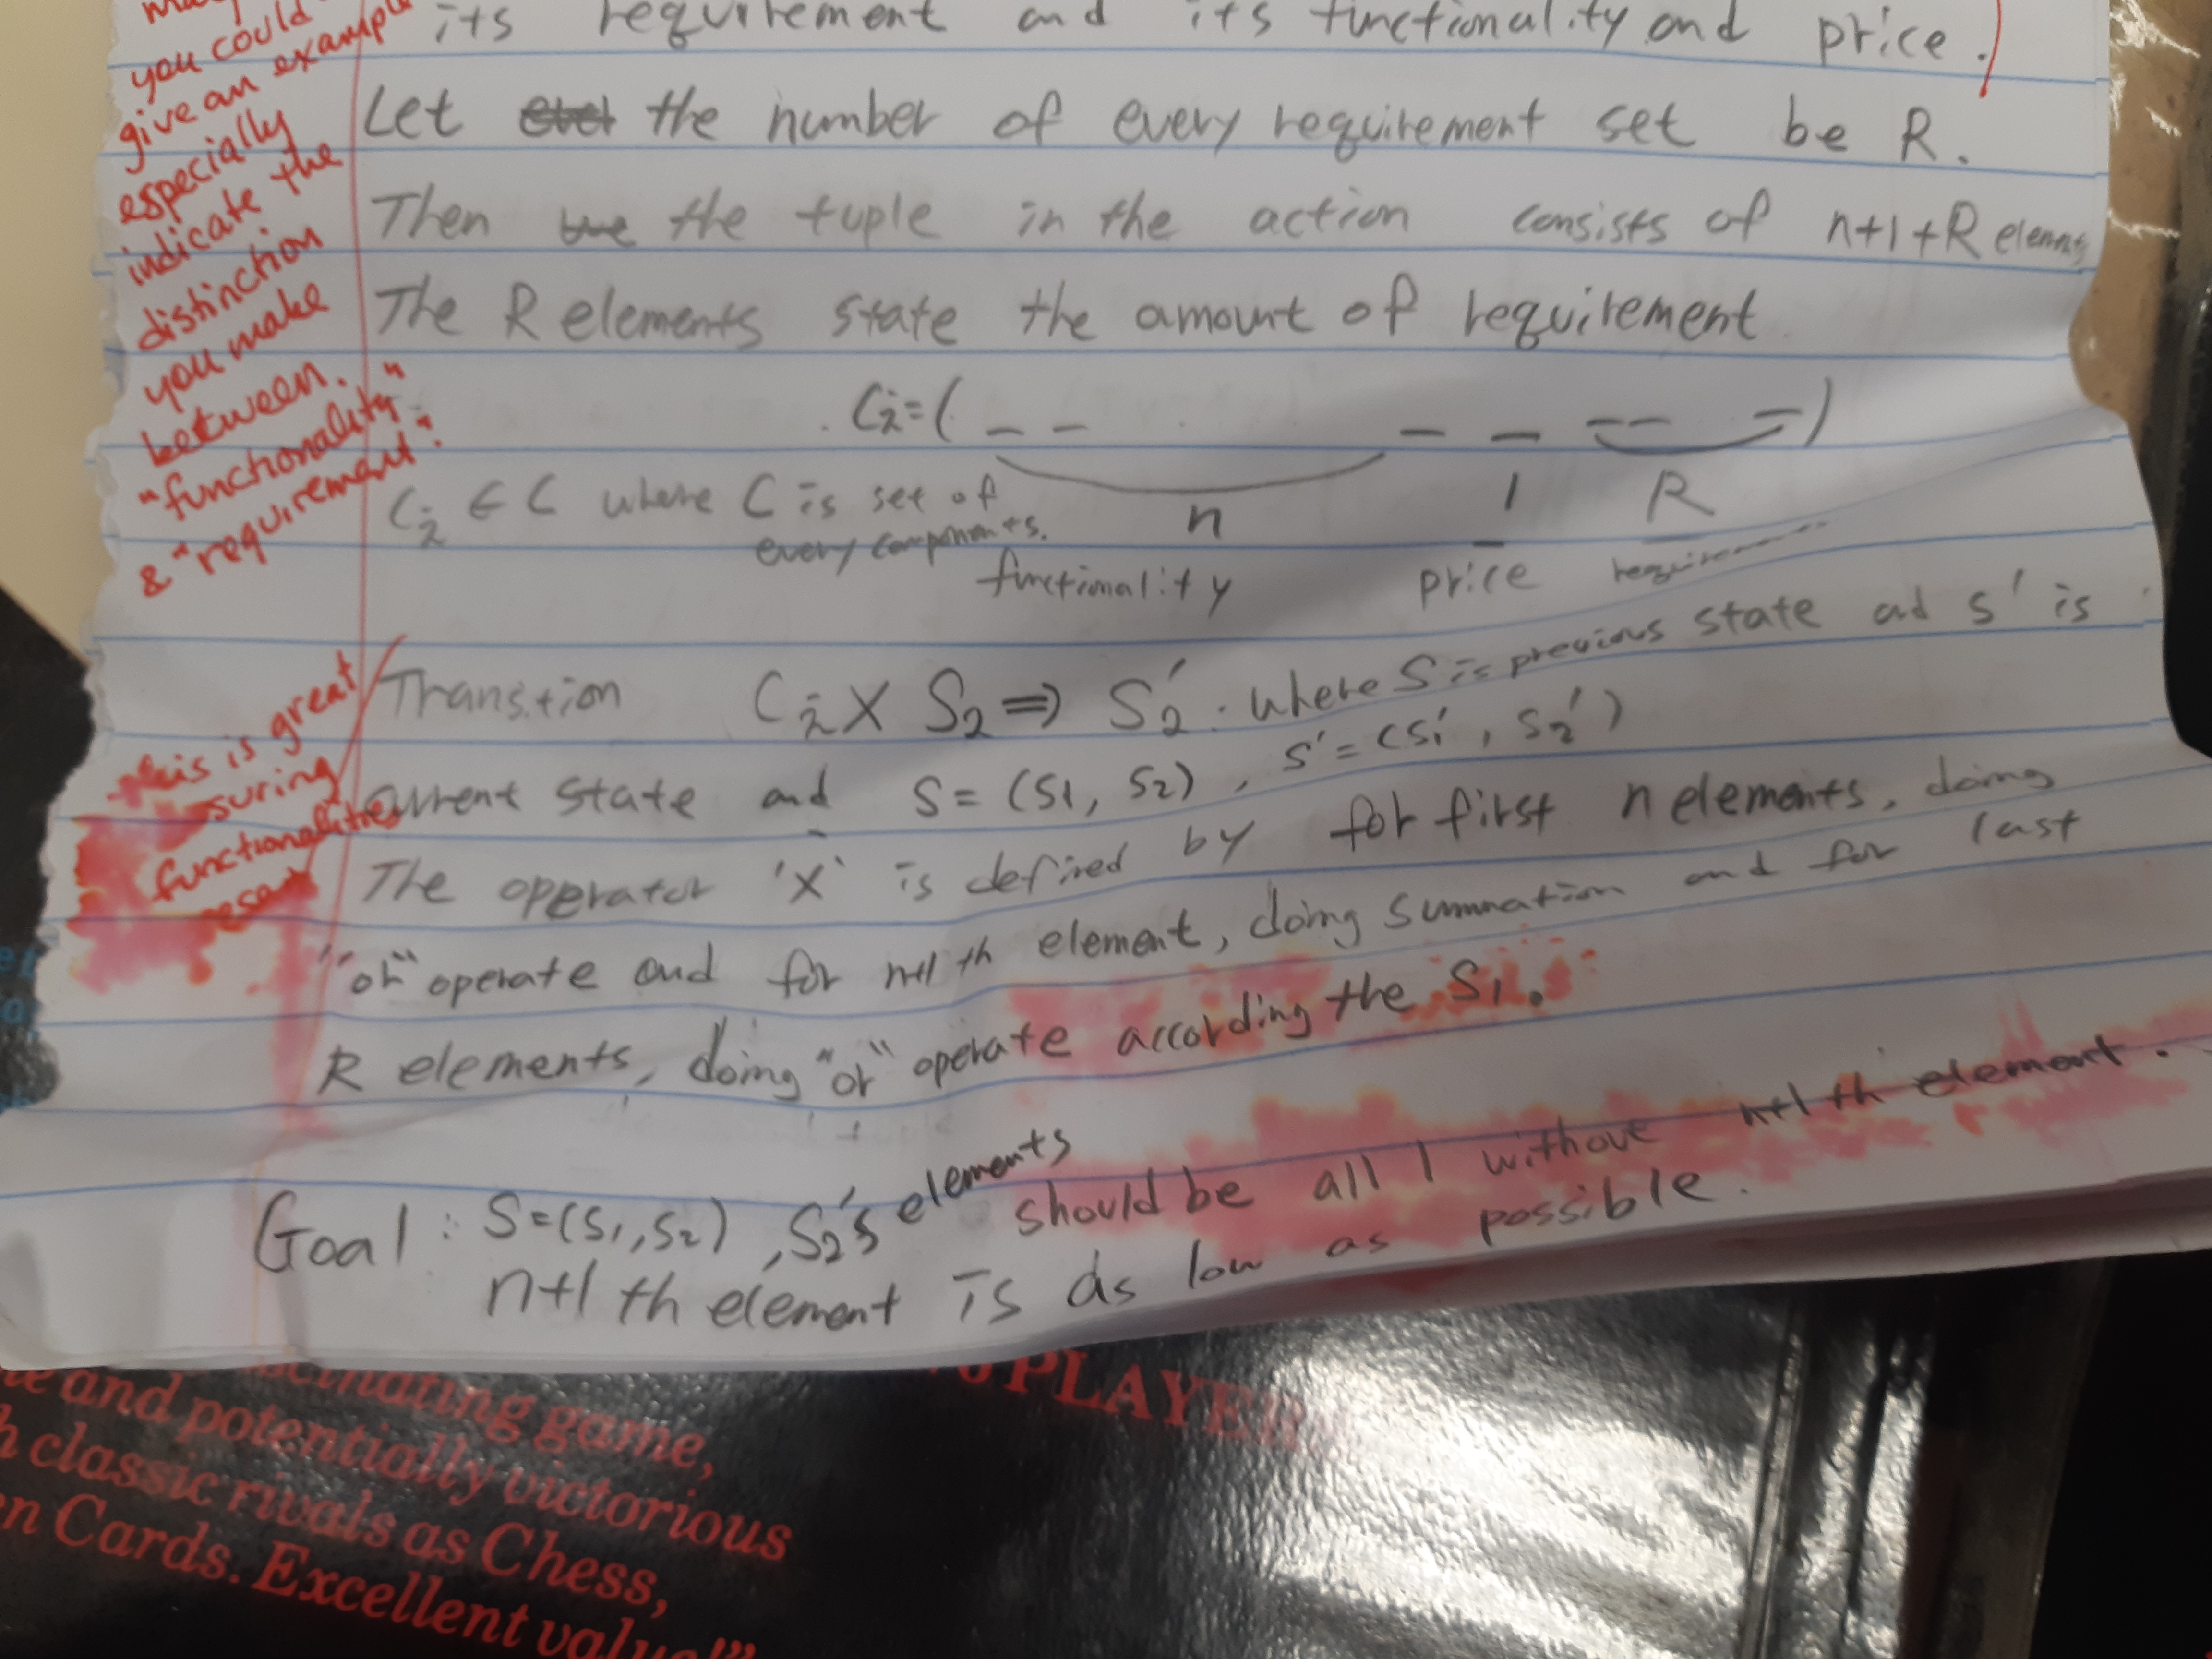 its requirement and its functionality and price.)
Let the number of every requirement set be R.
Then the tuple in the action consists of n+1+R elements
The R elements state the amount of requirement.
C₂=( - - - - - - )
n 1 R
C₂ ∈ C where C is set of
every components.
functionality price
Transition C₂ X S₂ ⇒ S₂'. where S is previous state ad s' is
current state ad S = (S1, S2), S' = (S1', S2')
The operator 'X' is defined by for first n elements, doing
"or" operate and for n+1 th element, doing summation and for last
R elements, doing "or" operate according the S1.
Goal : S=(S1, S2), S2's elements should be all 1 without n+1 th element.
n+1 th element is as low as possible.
you could
give an example
especially
indicate the
distinction
you make
between
"functionality"
& "requirement".
this is great
functionalities
and potentially victorious
classic rivals as Chess,
Cards. Excellent value!"